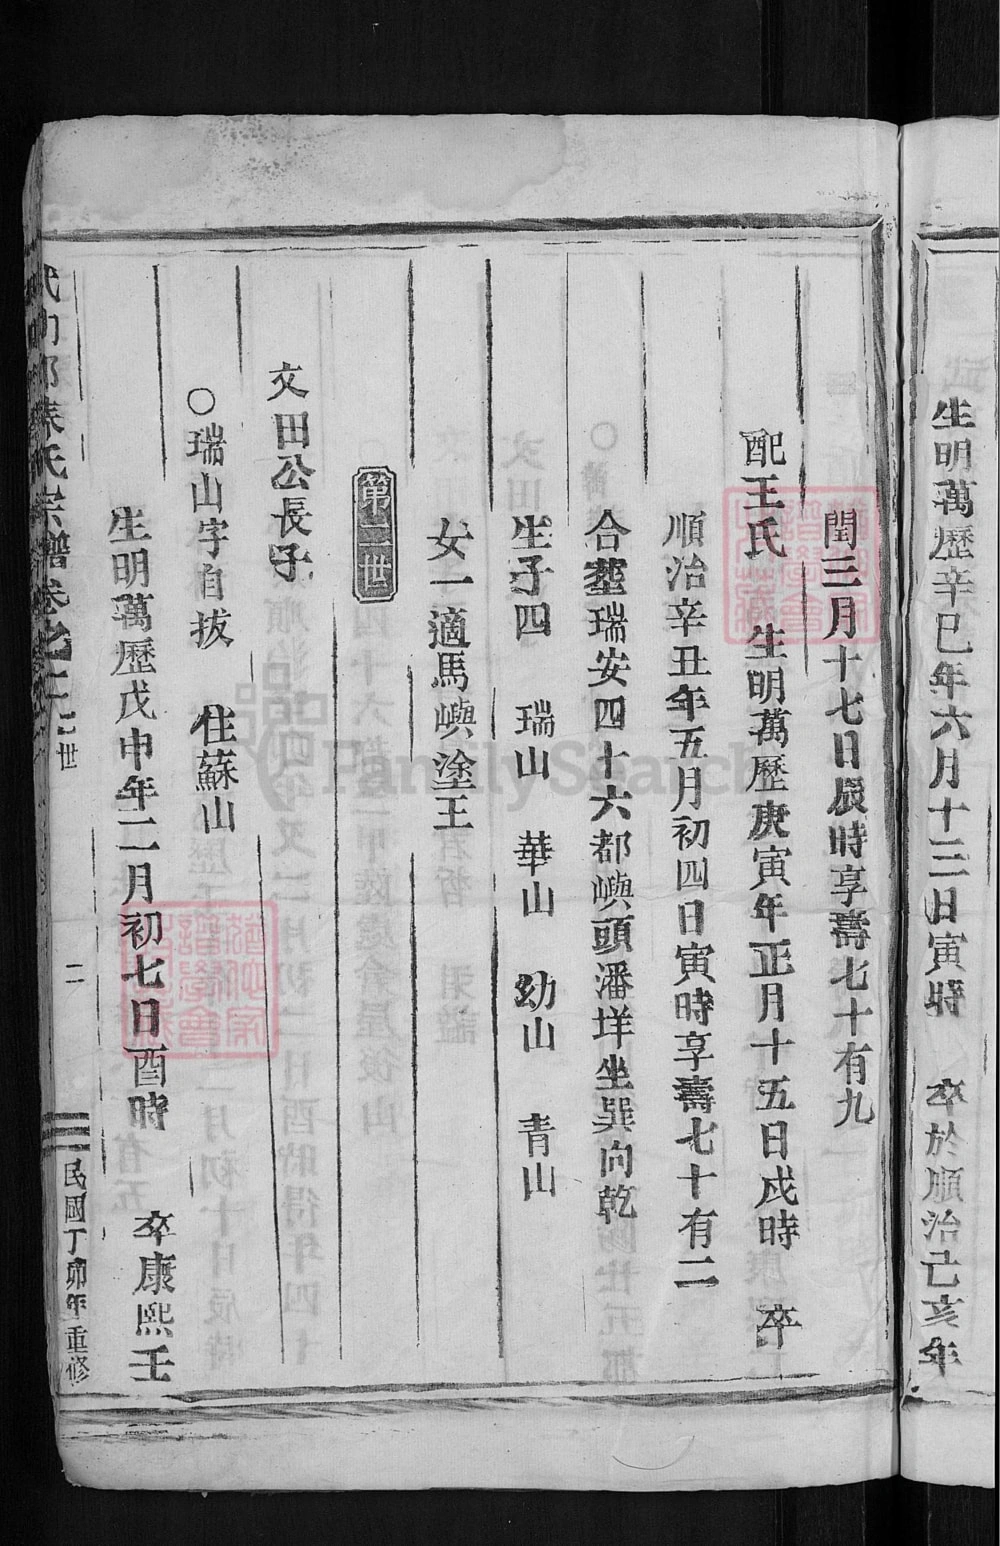 生明萬歷辛巳年六月十三日寅時 卒於順治己亥年
閏三月十七日辰時享壽七十有九
配王氏 生明萬歷庚寅年正月十五日戌時 卒
順治辛丑年五月初四日寅時享壽七十有二
合塟瑞安四十六都嶼頭潘垟坐巽向乾
生子四 瑞山 華山 幼山 青山
女一適馬嶼塗王
第二世
文田公長子
○瑞山字自拔 住蘇山
生明萬歷戊申年二月初七日酉時 卒康熙壬
氏宗譜卷之二 世 二 民國丁卯年重修
FamilySearch